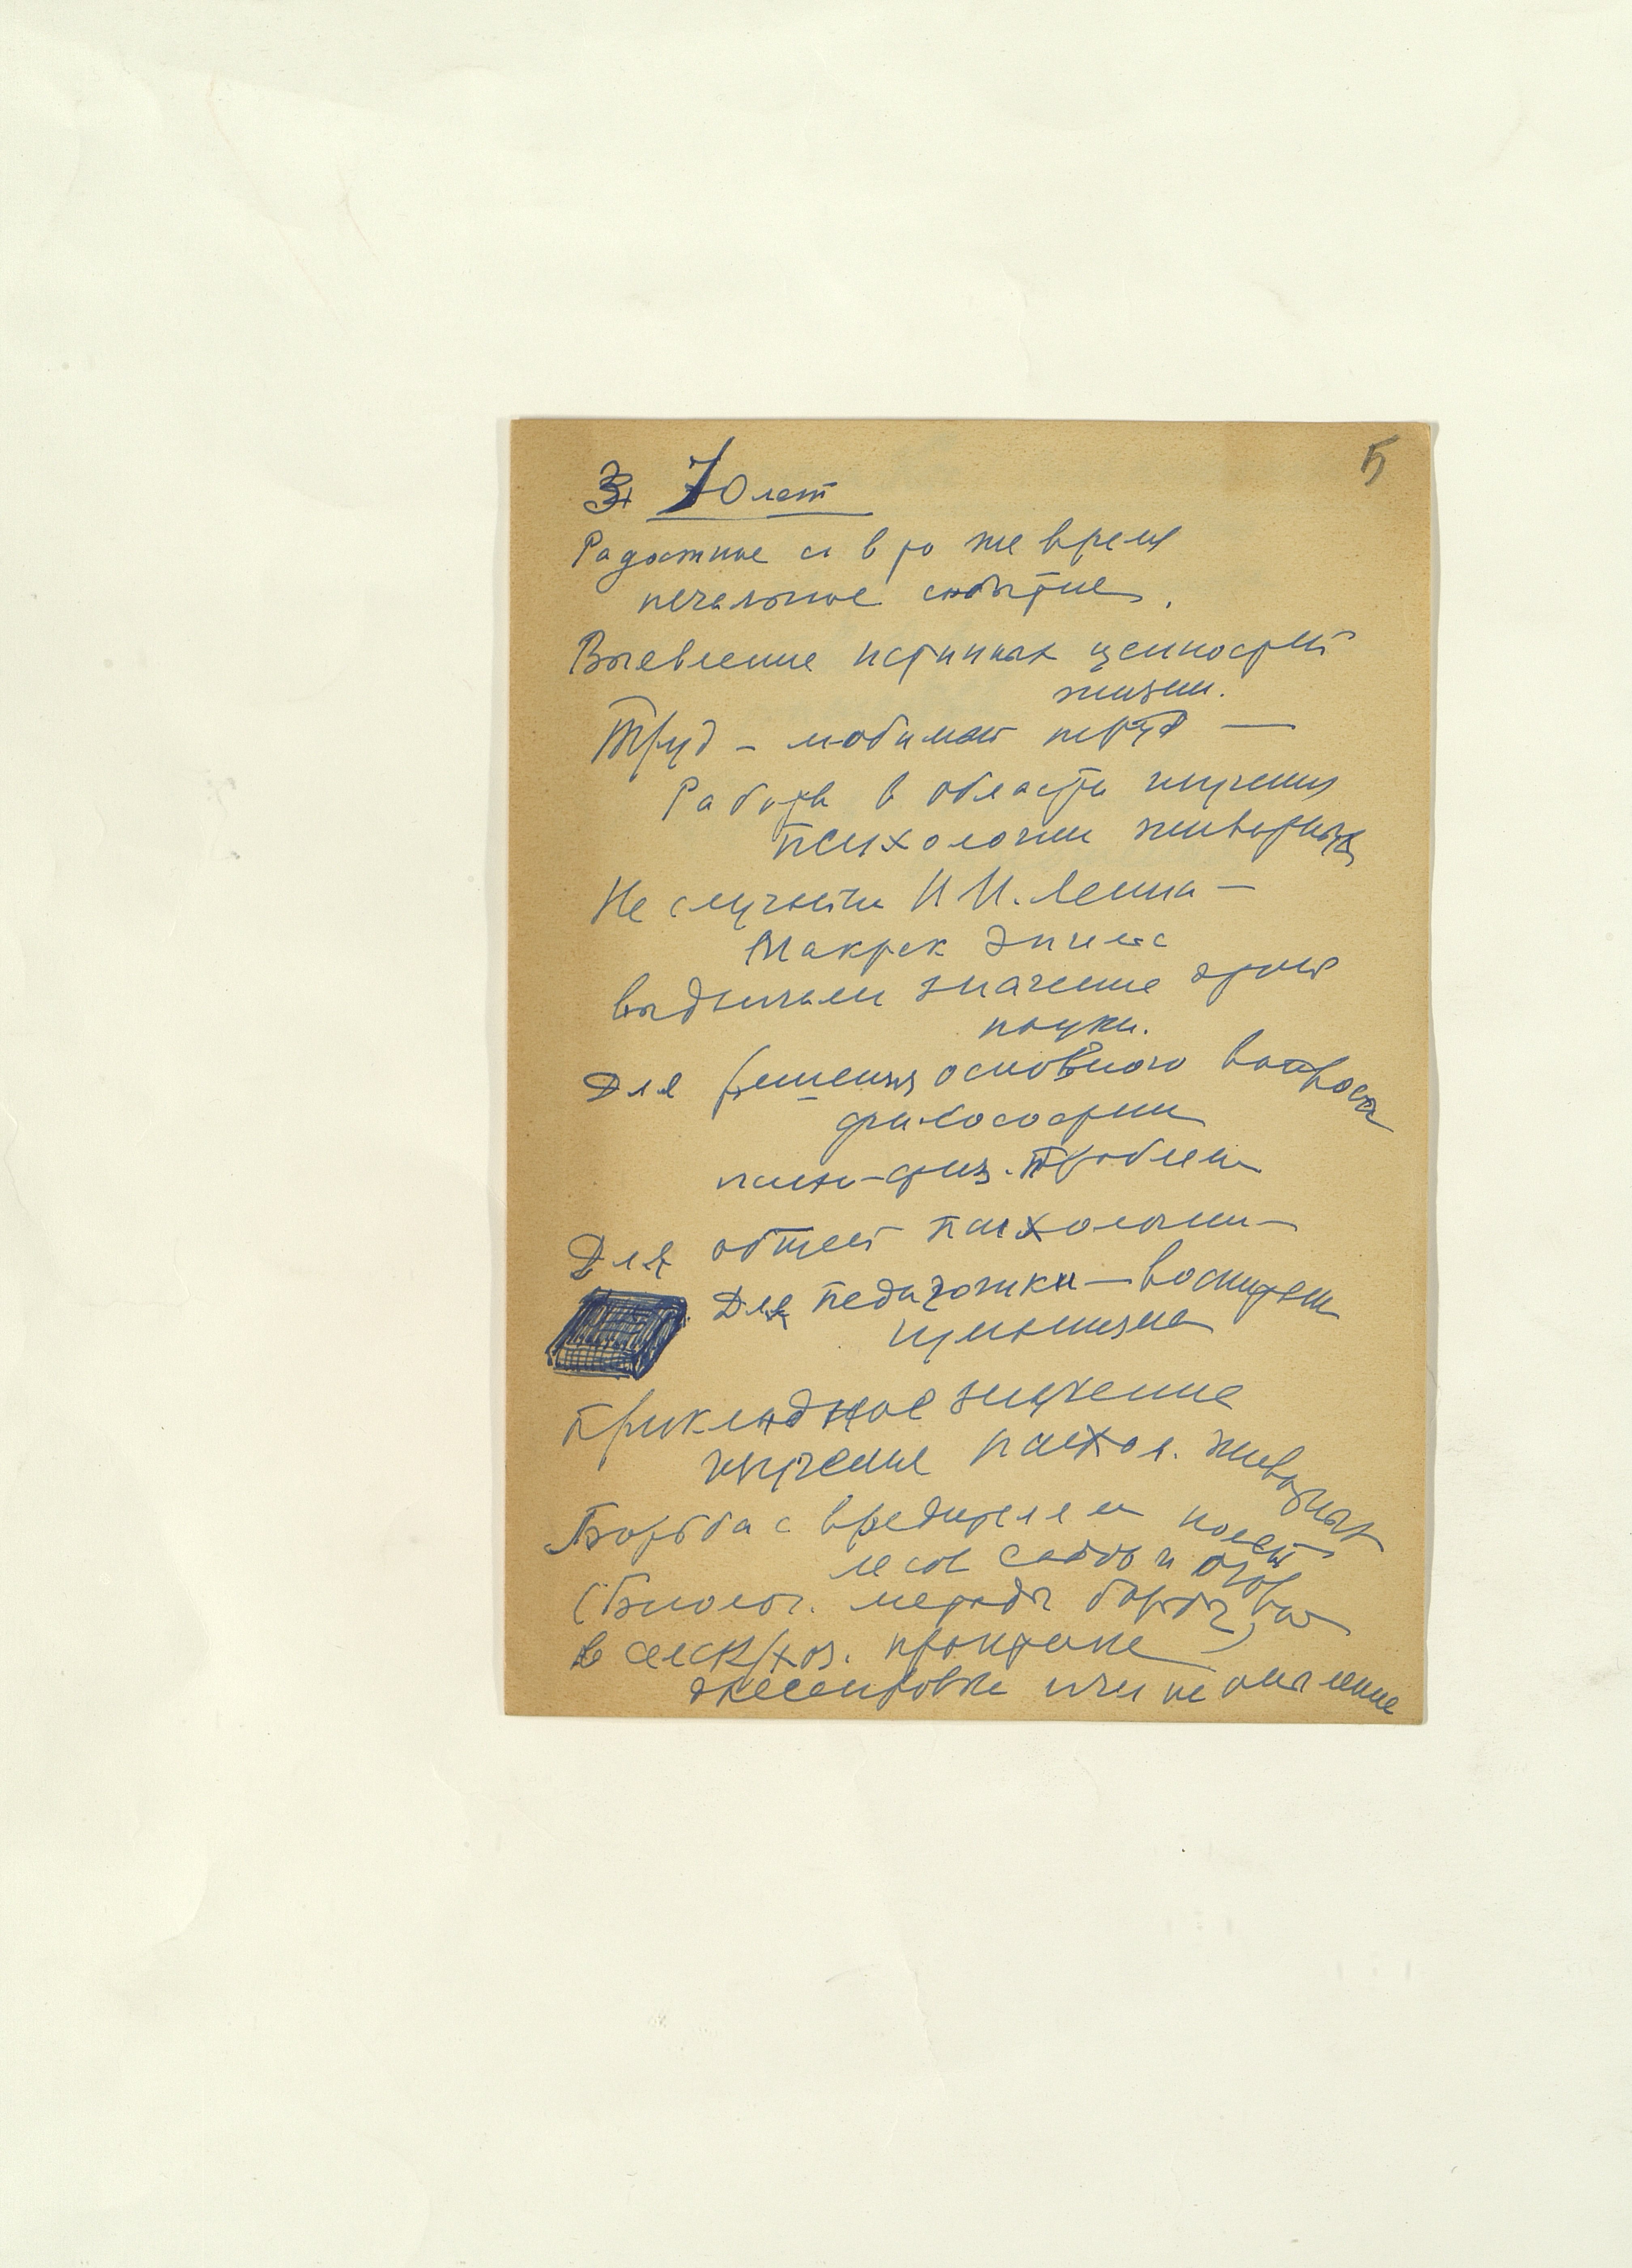 5
3. 70 лет
Радостное и в то же время
печальное событие.
Выевление истинных ценностей
жизни.
Труд – любимый труд —
Работа в области изучения
психологии животных
Не случайно Ленин —
Маркс Энгельс
выдвигали значение этой
науки.
Для решения основного вопроса
философии
психо-физ. проблемы
Для общей психологии —
Для педагогики — воспитан
Прикладное значение
изучение психол. животных
Борьба с вредителем полей
лесов садов и огородов
(Биолог. методы борьбы)
в сельск/хоз. практике
дрессировка